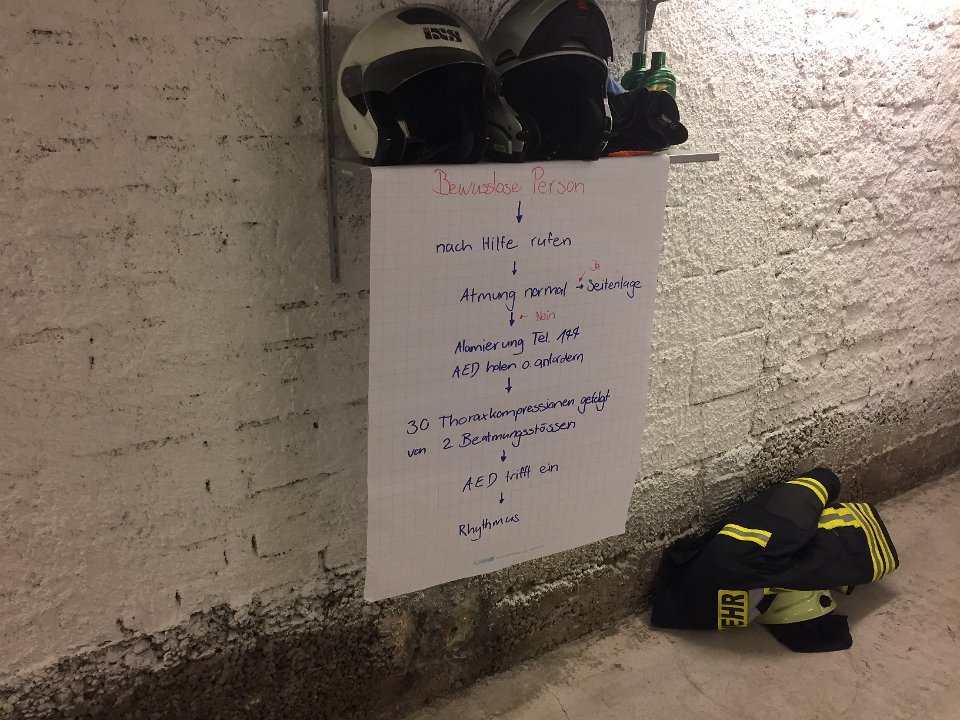 iXS
Bewusslose Person
nach Hilfe rufen
Ja
Atmung normal → Seitenlage
Nein
Alamierung Tel. 144
AED holen o. anfordern
30 Thoraxkompressionen gefolgt
von 2 Beatmungsstössen
AED trifft ein
Rhythmus
EHR